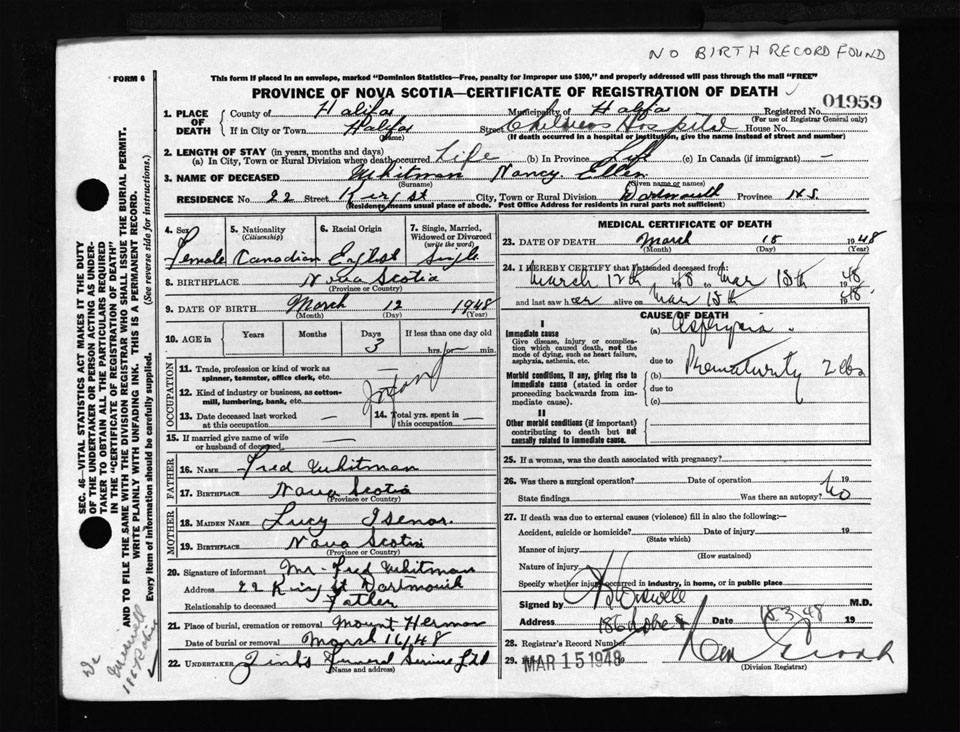 NO BIRTH RECORD FOUND
FORM 6
This form if placed in an envelope, marked "Dominion Statistics—Free, penalty for improper use $300," and properly addressed will pass through the mail "FREE"
PROVINCE OF NOVA SCOTIA—CERTIFICATE OF REGISTRATION OF DEATH
01959
1. PLACE OF DEATH
County of Halifax Municipality of Halifax Registered No.
(For use of Registrar General only)
If in City or Town Halifax Street Childrens Hospital House No.
(Name) (If death occurred in a hospital or institution, give the name instead of street and number)
2. LENGTH OF STAY (in years, months and days)
(a) In City, Town or Rural Division where death occurred Life (b) In Province Life (c) In Canada (if immigrant) —
3. NAME OF DECEASED Whitman Nancy Ellen
(Surname) (Given name or names)
RESIDENCE No. 22 Street King St City, Town or Rural Division Dartmouth Province N.S.
(Residence means usual place of abode. Post Office Address for residents in rural parts not sufficient)
4. Sex Female
5. Nationality (Citizenship) Canadian
6. Racial Origin English
7. Single, Married, Widowed or Divorced (write the word) Single
8. BIRTHPLACE Nova Scotia
(Province or Country)
9. DATE OF BIRTH March 12 1948
(Month) (Day) (Year)
10. AGE in Years Months Days 3 If less than one day old hrs. or min.
OCCUPATION
11. Trade, profession or kind of work as spinner, teamster, office clerk, etc. —
12. Kind of industry or business, as cotton-mill, lumbering, bank, etc.
13. Date deceased last worked at this occupation —
14. Total yrs. spent in this occupation —
15. If married give name of wife or husband of deceased —
FATHER
16. NAME Fred Whitman
17. BIRTHPLACE Nova Scotia
(Province or Country)
MOTHER
18. MAIDEN NAME Lucy Isenor
19. BIRTHPLACE Nova Scotia
(Province or Country)
20. Signature of informant Mr. Fred Whitman
Address 22 King St Dartmouth
Relationship to deceased Father
21. Place of burial, cremation or removal Mount Hermon
Date of burial or removal March 16/48
22. UNDERTAKER Funeral Service Ltd
(Name and address)
MEDICAL CERTIFICATE OF DEATH
23. DATE OF DEATH March 15 1948
(Month) (Day) (Year)
24. I HEREBY CERTIFY that I attended deceased from:
March 12th 48 to Mar 15th 1948
and last saw her alive on Mar 15th 1948.
CAUSE OF DEATH
I
Immediate cause
Give disease, injury or complication which caused death, not the mode of dying, such as heart failure, asphyxia, asthenia, etc.
(a) Asphyxia
due to
Morbid conditions, if any, giving rise to immediate cause (stated in order proceeding backwards from immediate cause).
(b) Prematurity 2 lbs
due to
(c)
II
Other morbid conditions (if important) contributing to death but not causally related to immediate cause.
25. If a woman, was the death associated with pregnancy?
26. Was there a surgical operation? Date of operation 19
State findings Was there an autopsy? No
27. If death was due to external causes (violence) fill in also the following:—
Accident, suicide or homicide? Date of injury 19
(State which)
Manner of injury
(How sustained)
Nature of injury
Specify whether injury occurred in industry, in home, or in public place
Signed by M.D.
Address 186 Date 15.3.48 19
28. Registrar's Record Number
29. MAR 15 1948
(Division Registrar)
SEC. 46—VITAL STATISTICS ACT MAKES IT THE DUTY
OF THE UNDERTAKER OR PERSON ACTING AS UNDERTAKER TO OBTAIN ALL THE PARTICULARS REQUIRED
IN THE "CERTIFICATE OF REGISTRATION OF DEATH"
AND TO FILE THE SAME WITH THE DIVISION REGISTRAR WHO SHALL ISSUE THE BURIAL PERMIT.
WRITE PLAINLY WITH UNFADING INK. THIS IS A PERMANENT RECORD.
Every item of information should be carefully supplied. (See reverse side for instructions.)